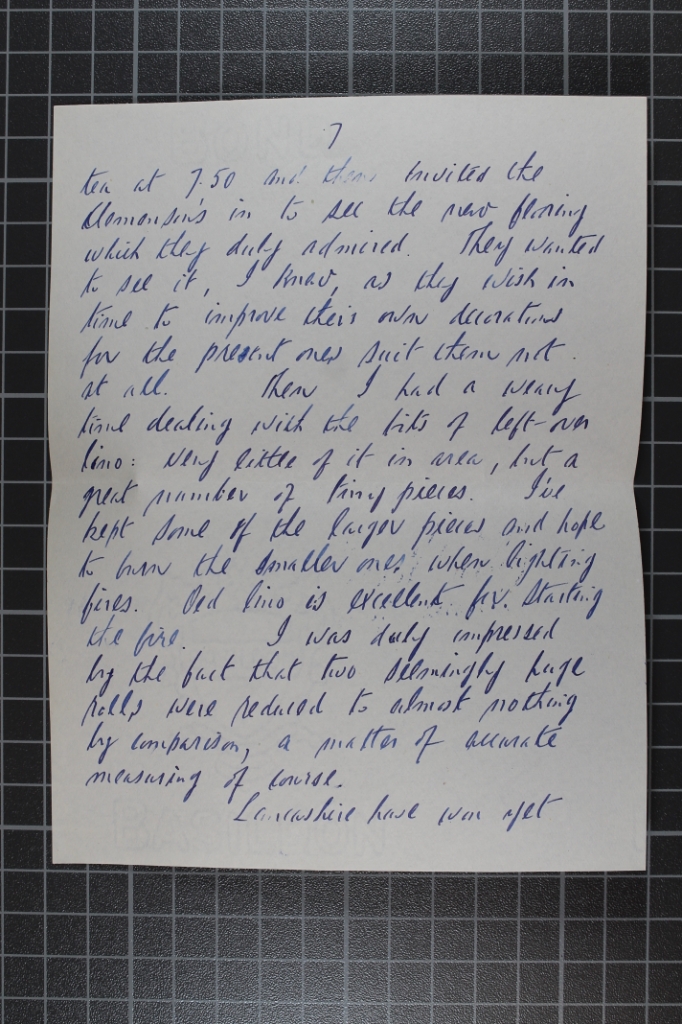 7
tea at 7.50 and then invited the
Clemenson's in to see the new flooring
which they duly admired. They wanted
to see it, I knew, as they wish in
time to improve their own decorations
for the present ones suit them not
at all. Then I had a weary
time dealing with the bits of left-over
lino: very little of it in area, but a
great number of tiny pieces. I've
kept some of the larger pieces and hope
to burn the smaller ones when lighting
fires. Old lino is excellent for starting
the fire. I was duly impressed
by the fact that two seemingly huge
rolls were reduced to almost nothing
by comparison, a matter of accurate
measuring of course.
Lancashire have won yet